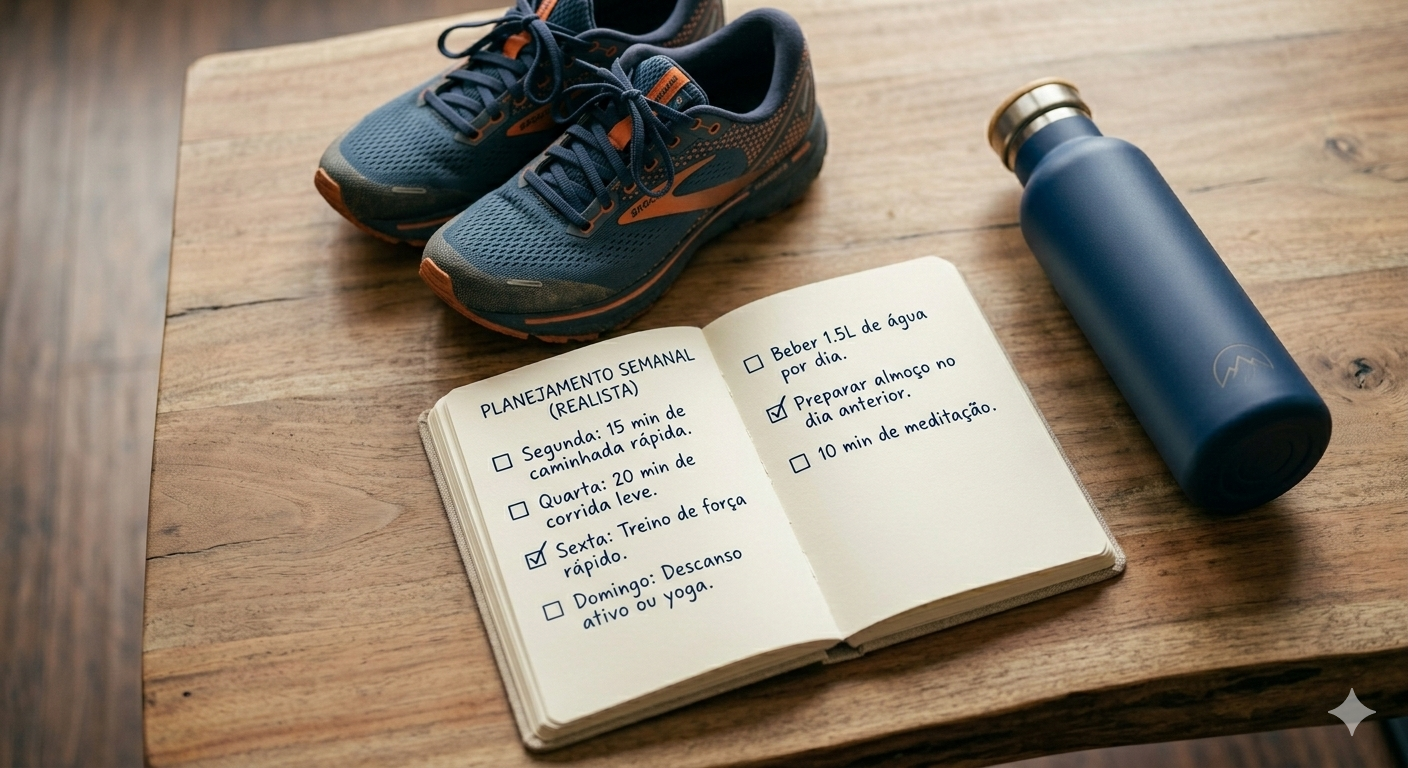 PLANEJAMENTO SEMANAL
(REALISTA)
Segunda: 15 min de
caminhada rápida.
Quarta: 20 min de
corrida leve.
Sexta: Treino de força
rápido.
Domingo: Descanso
ativo ou yoga.
Beber 1.5L de água
por dia.
Preparar almoço no
dia anterior.
10 min de meditação.